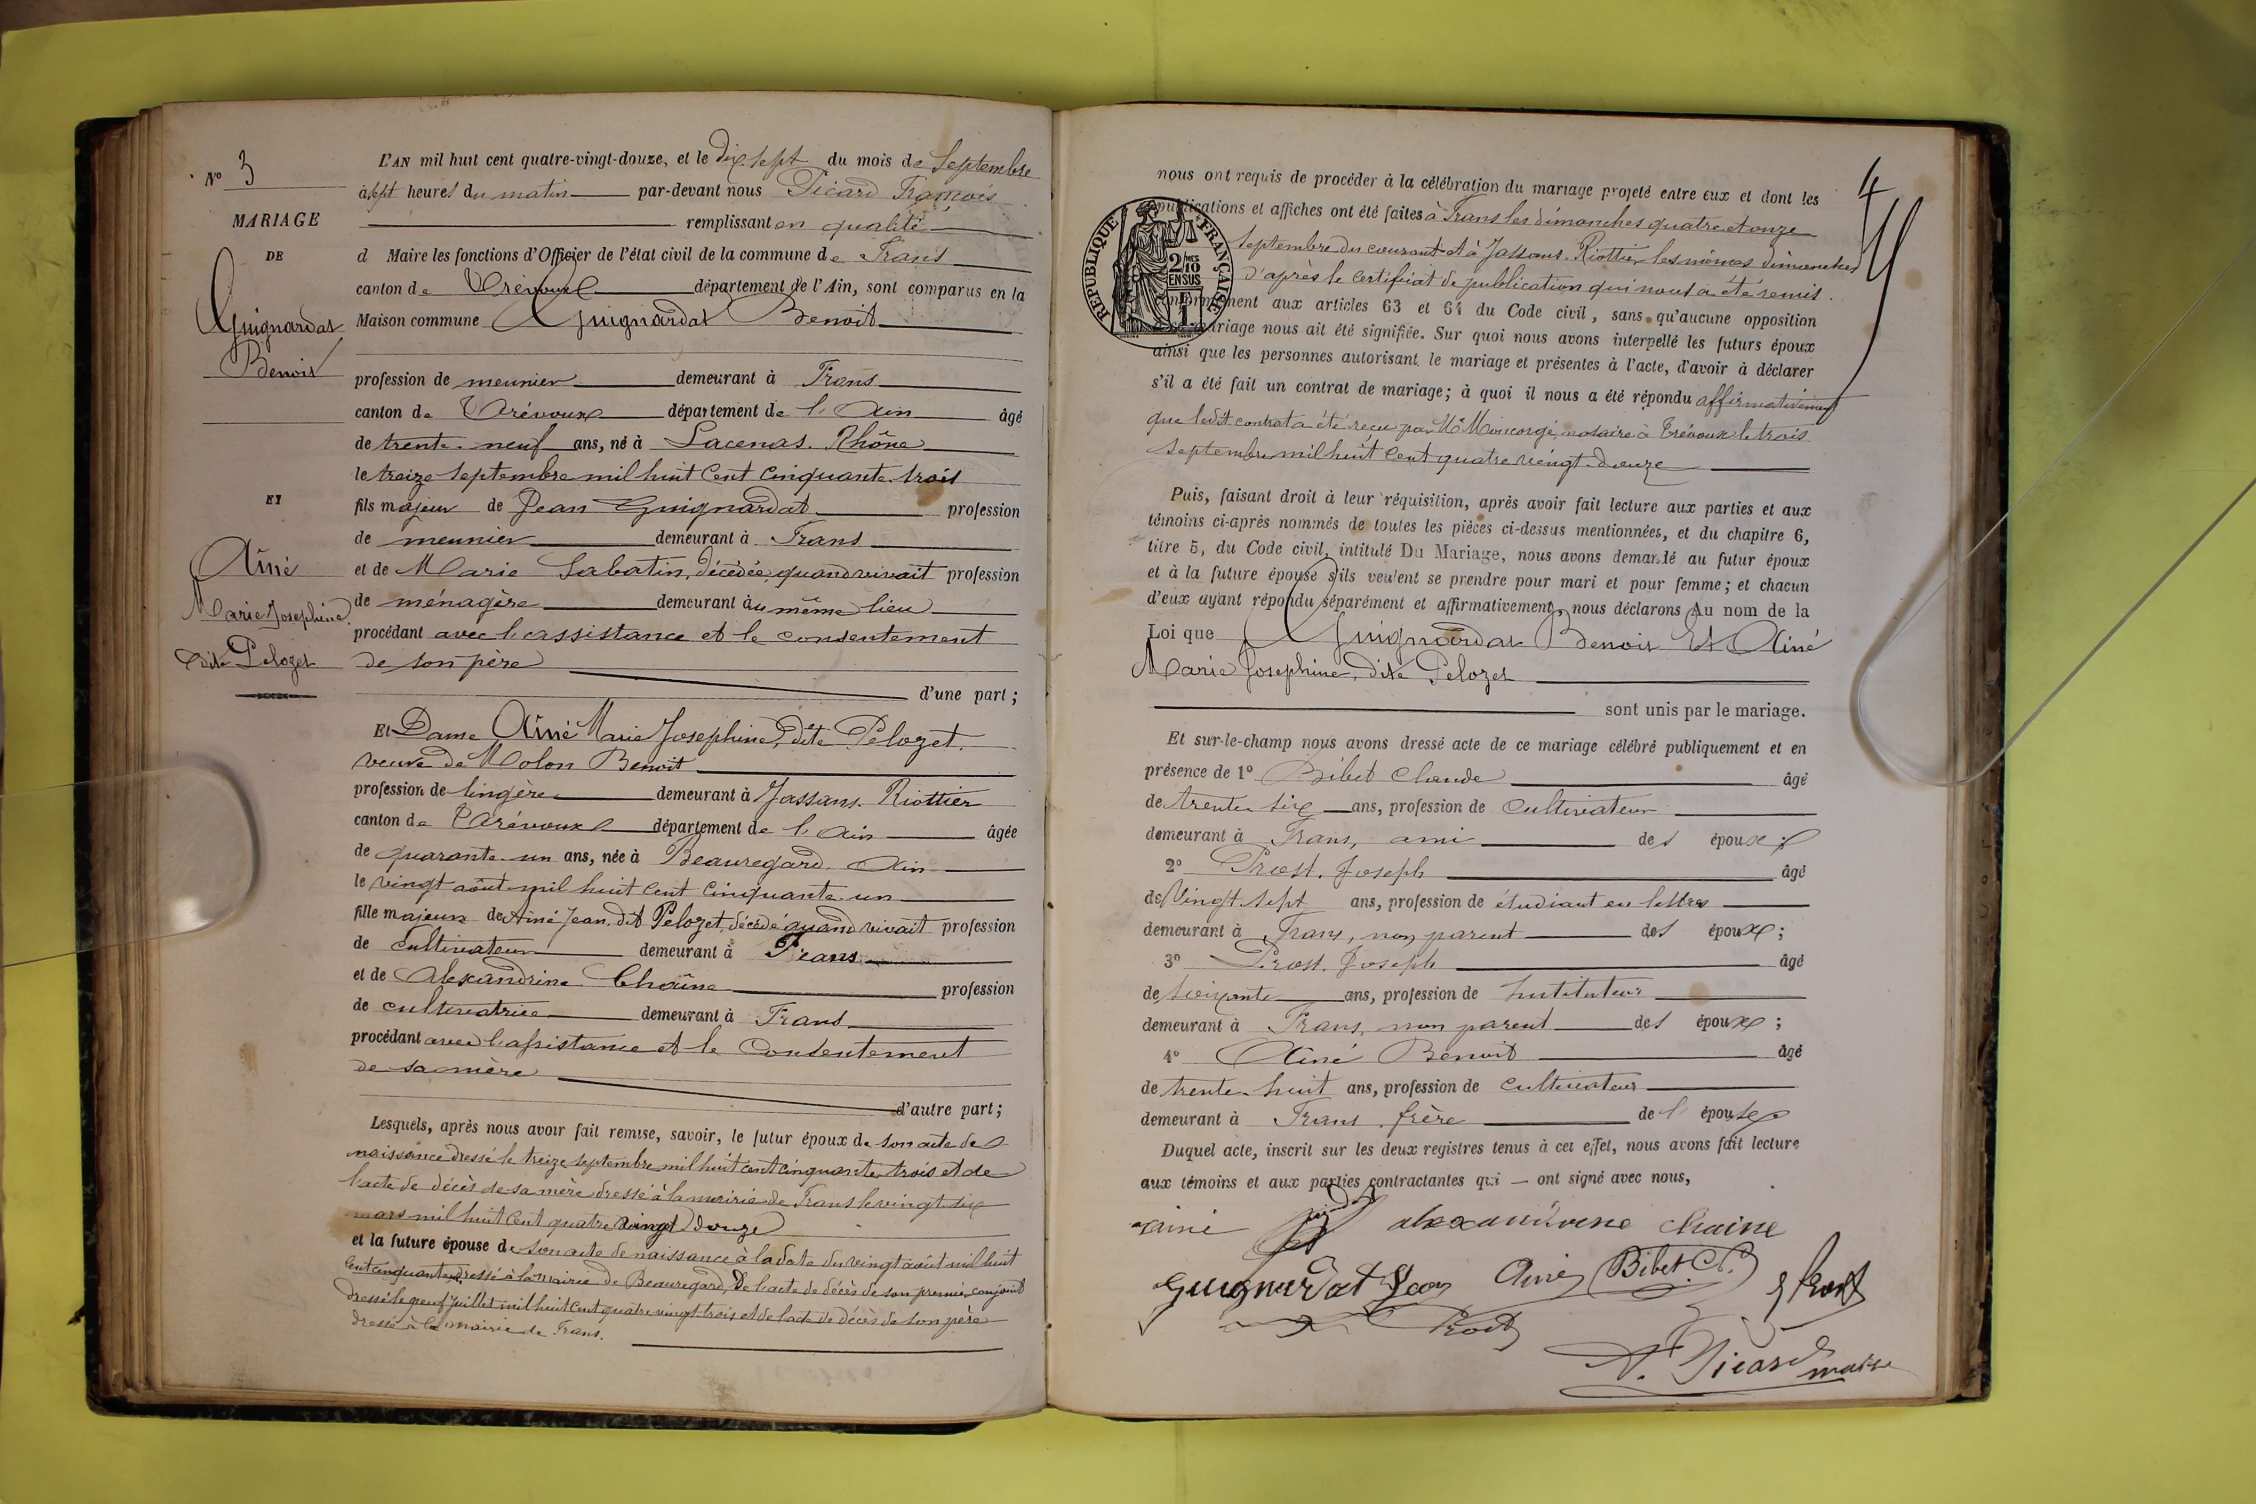 N° 3
MARIAGE
DE
Guignardat
Benoit
ET
Ainé
Marie Josephine
dite Pelozet
L'AN mil huit cent quatre-vingt-douze, et le dix sept du mois de Septembre
à sept heures du matin par-devant nous Picard François
remplissant en qualité
d Maire les fonctions d'Officier de l'état civil de la commune de Frans
canton de Trévoux département de l'Ain, sont comparus en la
Maison commune Guignardat Benoit
profession de meunier demeurant à Frans
canton de Trévoux département de l'Ain âgé
de trente-neuf ans, né à Lacenas. Rhône
le treize septembre mil huit cent cinquante-trois
fils majeur de Jean Guignardat profession
de meunier demeurant à Frans
et de Marie Sabatin, décédée, quand vivait profession
de ménagère demeurant àu même lieu
procédant avec l'assistance et le consentement
de son père
d'une part;
Et Dame Ainé Marie Josephine, dite Pelozet,
veuve de Molon Benoit
profession de lingère demeurant à Jassans-Riottier
canton de Trévoux département de l'Ain âgée
de quarante-un ans, née à Beauregard. Ain
le vingt août mil huit cent cinquante-un
fille majeure de Ainé Jean, dit Pelozet, décédé quand vivait profession
de cultivateur demeurant à Frans
et de Alexandrine Chaîne profession
de cultivatrice demeurant à Frans
procédant avec l'assistance et le consentement
de sa mère
d'autre part;
Lesquels, après nous avoir fait remise, savoir, le futur époux de son acte de
naissance dressé le treize septembre mil huit cent cinquante trois et de
l'acte de décès de sa mère dressé à la mairie de Frans le vingt-six
mars mil huit cent quatre vingt douze
et la future épouse de son acte de naissance à la date du vingt août mil huit
cent cinquante un dressé à la mairie de Beauregard, De l'acte de décès de son premier conjoint
dressé le neuf juillet mil huit cent quatre vingt-trois et de l'acte de décès de son père
dressé à la mairie de Frans.
4
nous ont requis de procéder à la célébration du mariage projeté entre eux et dont les
publications et affiches ont été faites à Frans les dimanches quatre et onze
septembre du courant et à Jassans-Riottier les mêmes dimanches
d'après le certificat de publication qui nous a été remis.
conformément aux articles 63 et 64 du Code civil, sans qu'aucune opposition
mariage nous ait été signifiée. Sur quoi nous avons interpellé les futurs époux
ainsi que les personnes autorisant le mariage et présentes à l'acte, d'avoir à déclarer
s'il a été fait un contrat de mariage; à quoi il nous a été répondu affirmativement
que ledit contrat a été reçu par Me notaire à Trévoux le trois
septembre mil huit cent quatre vingt-douze
RÉPUBLIQUE FRANÇAISE
2/10
EN SUS
1
Puis, faisant droit à leur réquisition, après avoir fait lecture aux parties et aux
témoins ci-après nommés de toutes les pièces ci-dessus mentionnées, et du chapitre 6,
titre 5, du Code civil, intitulé Du Mariage, nous avons demandé au futur époux
et à la future épouse s'ils veulent se prendre pour mari et pour femme; et chacun
d'eux ayant répondu séparément et affirmativement, nous déclarons Au nom de la
Loi que Guignardat Benoit Et Ainé
Marie Josephine, dite Pelozet
sont unis par le mariage.
Et sur-le-champ nous avons dressé acte de ce mariage célébré publiquement et en
présence de 1° Bibet Claude âgé
de trente six ans, profession de cultivateur
demeurant à Frans, ami des époux;
2° Prost. Joseph âgé
de Vingt-sept ans, profession de étudiant en lettres
demeurant à Frans, non parent des époux;
3° Prost. Joseph âgé
de soixante ans, profession de Instituteur
demeurant à Frans, non parent des époux;
4° Ainé Benoit âgé
de trente huit ans, profession de cultivateur
demeurant à Frans. frère de l'épouse
Duquel acte, inscrit sur les deux registres tenus à cet effet, nous avons fait lecture
aux témoins et aux parties contractantes qui — ont signé avec nous,
ainé alexandrine chaine
Guignardat Jean Ainé Bibet C. Prost
Prost
F. Picard maire